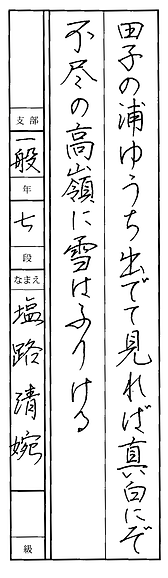 田子の浦ゆうち出でて見れば真白にぞ
不尽の高嶺に雪はふりける
支部 一般
年 七 段
なまえ 塩路清婉
級